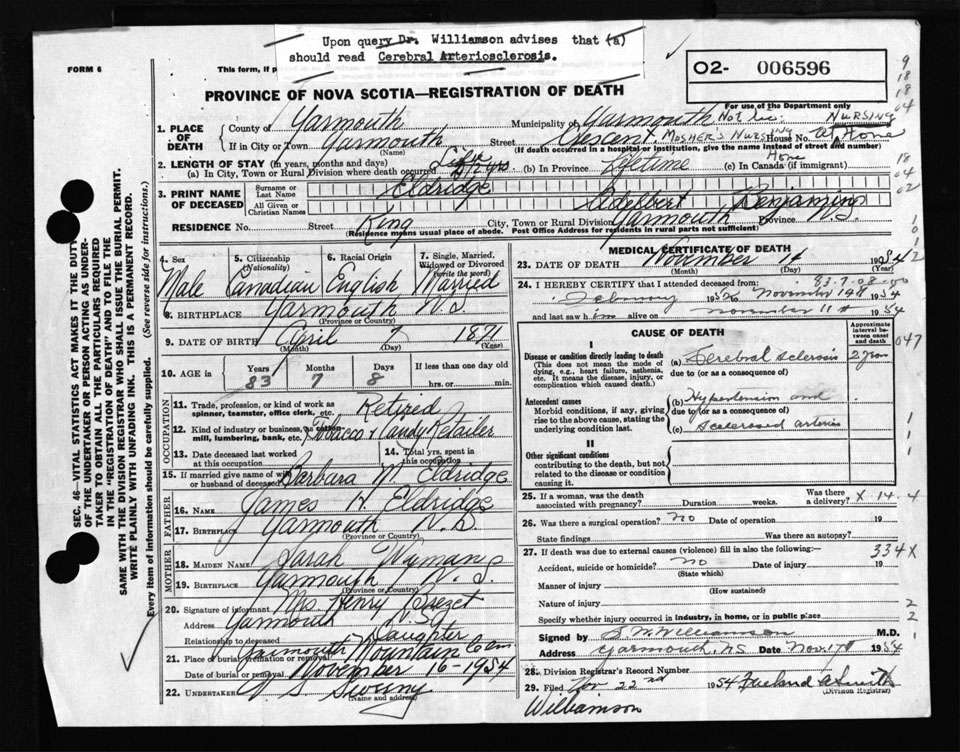 Upon query Dr. Williamson advises that (a)
should read Cerebral Arteriosclerosis.
FORM 6
This form, if p
O2- 006596
PROVINCE OF NOVA SCOTIA—REGISTRATION OF DEATH
For use of the Department only
1. PLACE OF DEATH
County of Yarmouth Municipality of Yarmouth Not lic. NURSING
If in City or Town Yarmouth Street Crescent. MOSHER'S NURSING House No. at Home
(Name) (If death occurred in a hospital or institution, give the name instead of street and number)
2. LENGTH OF STAY (in years, months and days) Home
(a) In City, Town or Rural Division where death occurred Life (b) In Province Lifetime (c) In Canada (if immigrant)
3. PRINT NAME OF DECEASED
Surname or Last Name Eldridge
All Given or Christian Names Adelbert Benjamin
RESIDENCE No. Street King City, Town or Rural Division Yarmouth Province N.S.
(Residence means usual place of abode. Post Office Address for residents in rural parts not sufficient)
4. Sex Male
5. Citizenship (Nationality) Canadian
6. Racial Origin English
7. Single, Married, Widowed or Divorced (write the word) Married
8. BIRTHPLACE Yarmouth N.S.
(Province or Country)
9. DATE OF BIRTH April 7 1871
(Month) (Day) (Year)
10. AGE in Years Months Days If less than one day
83 7 8 hrs. or min.
OCCUPATION
11. Trade, profession, or kind of work as spinner, teamster, office clerk, etc. Retired
12. Kind of industry or business, as cotton-mill, lumbering, bank, etc. Tobacco & Candy Retailer
13. Date deceased last worked at this occupation
14. Total yrs. spent in this occupation
15. If married give name of wife or husband of deceased Barbara M. Eldridge
FATHER
16. NAME James H. Eldridge
17. BIRTHPLACE Yarmouth N.S.
(Province or Country)
MOTHER
18. MAIDEN NAME Sarah Wyman
19. BIRTHPLACE Yarmouth N.S.
(Province or Country)
20. Signature of informant Mrs. Henry
Address Yarmouth
Relationship to deceased Daughter
21. Place of burial, cremation or removal Yarmouth Mountain Cem
Date of burial or removal November 16-1954
22. UNDERTAKER Sweeny
(Name and address)
MEDICAL CERTIFICATE OF DEATH
23. DATE OF DEATH November 14 1954
(Month) (Day) (Year)
24. I HEREBY CERTIFY that I attended deceased from:
February 1952 to November 1954
and last saw him alive on November 11 1954
CAUSE OF DEATH
Approximate interval between onset and death
I
Disease or condition directly leading to death
(This does not mean the mode of dying, e.g., heart failure, asthenia, etc. It means the disease, injury, or complication which caused death.)
(a) Cerebral sclerosis 2 years
due to (or as a consequence of)
Antecedent causes
Morbid conditions, if any, giving rise to the above cause, stating the underlying condition last.
(b) Hypertension and
due to (or as a consequence of)
(c) sclerosed arteries
II
Other significant conditions
contributing to the death, but not related to the disease or condition causing it.
25. If a woman, was the death associated with pregnancy? Duration weeks. Was there a delivery? X-14-4
26. Was there a surgical operation? no Date of operation 19
State findings Was there an autopsy?
27. If death was due to external causes (violence) fill in also the following:— 334X
Accident, suicide or homicide? no Date of injury 19
(State which)
Manner of injury
(How sustained)
Nature of injury
Specify whether injury occurred in industry, in home, or in public place
Signed by S. W. Williamson M.D.
Address Yarmouth, N.S Date Nov. 17 1954
28. Division Registrar's Record Number
29. Filed Nov 22nd 1954 Freeland A Smith
(Division Registrar)
Williamson
SEC. 46—VITAL STATISTICS ACT MAKES IT THE DUTY
OF THE UNDERTAKER OR PERSON ACTING AS UNDER-
TAKER TO OBTAIN ALL THE PARTICULARS REQUIRED
IN THE "REGISTRATION OF DEATH" AND TO FILE THE
SAME WITH THE DIVISION REGISTRAR WHO SHALL ISSUE THE BURIAL PERMIT.
WRITE PLAINLY WITH UNFADING INK. THIS IS A PERMANENT RECORD.
Every item of information should be carefully supplied. (See reverse side for instructions.)